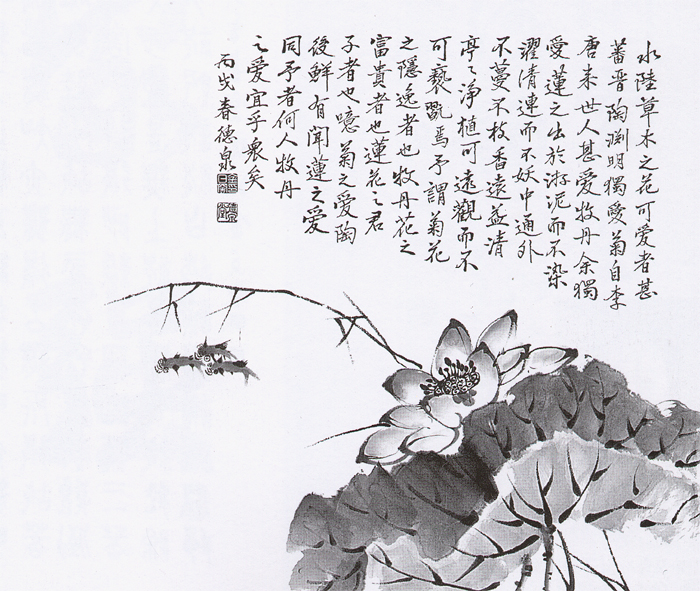 水陸草木之花可愛者甚
蕃晋陶渕明獨愛菊自李
唐来世人甚愛牧丹余獨
愛蓮之出於淤泥而不染
濯清連而不妖中通外
不蔓不枝香遠益清
亭々淨植可遠觀而不
可褻翫焉予謂菊花
之隱逸者也牧丹花之
富貴者也蓮花之君
子者也噫菊之愛陶
後鮮有聞蓮之愛
同予者何人牧丹
之愛宜乎衆矣
丙戌春德泉